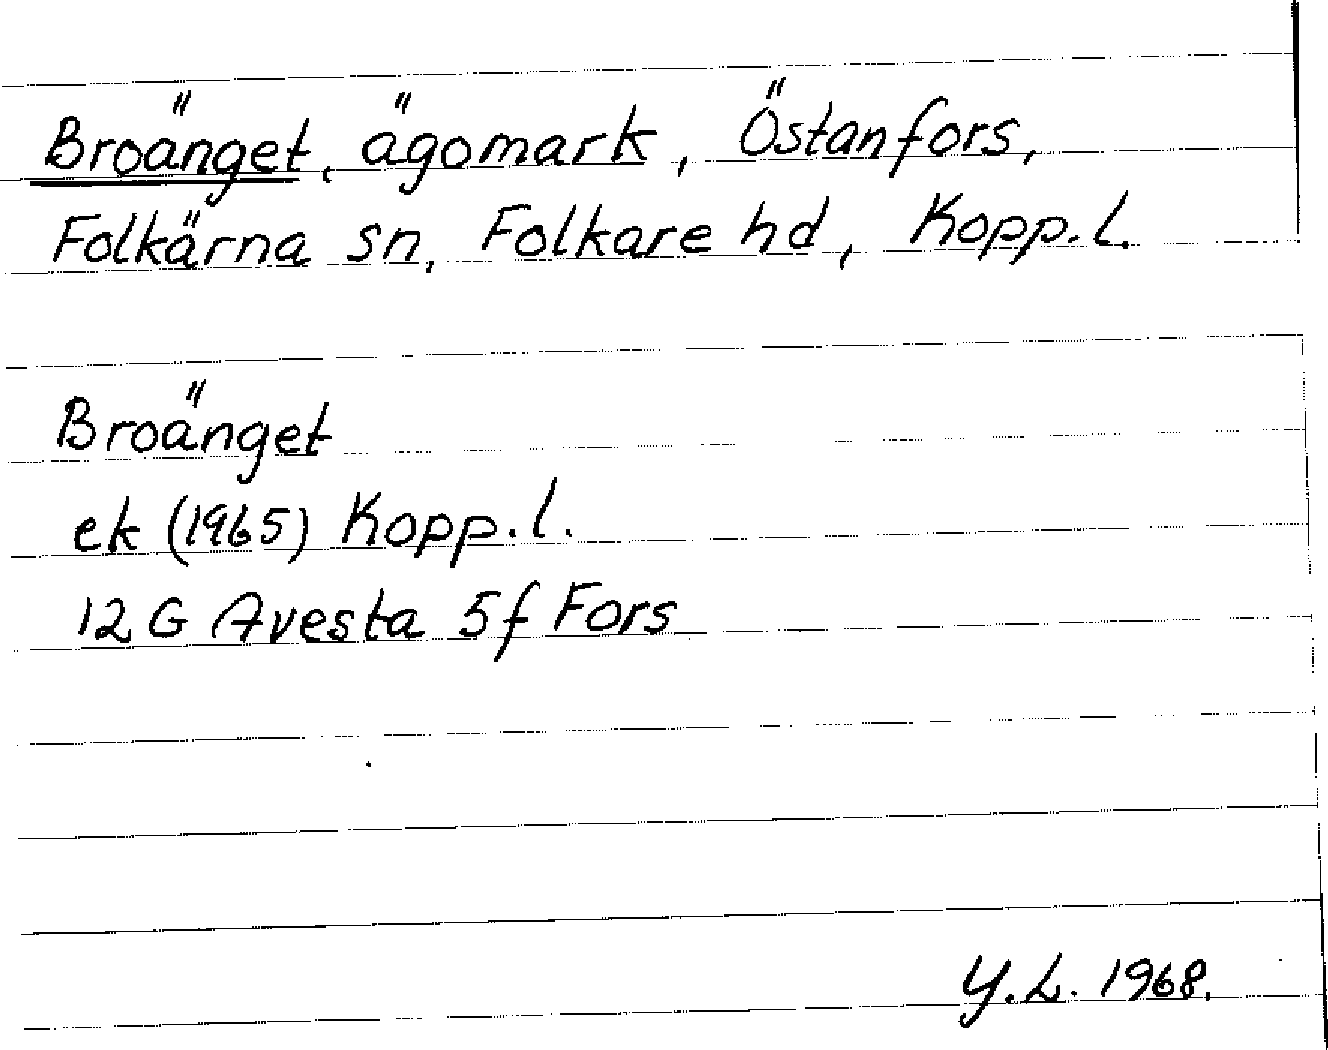 Broänget, ägomark, Östanfors,
Folkärna sn, Folkare hd, Kopp.l.
Broänget
ek (1965) Kopp.l.
12 G Avesta 5f Fors
Y.L. 1968.